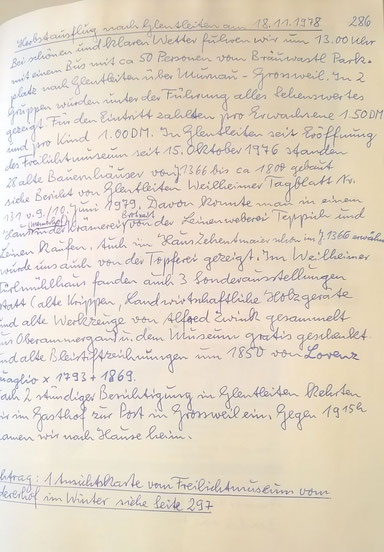 Herbstausflug nach Glentleiten am 18.11.1978 286
Bei schönen und klaren Wetter fuhren wir um 13.00 Uhr
mit einem Bus mit ca 50 Personen vom Bräuwastl Park-
platz nach Glentleiten über Murnau - Grossweil. In 2
Gruppen wurden unter der Führung alles Sehenswertes
gezeigt. Für den Eintritt zahlten pro Erwachsene 1.50 DM
und pro Kind 1.00 DM. In Glentleiten seit Eröffnung
des Freilichtmuseum seit 15. Oktober 1976 standen
28 alte Bauernhäuser von J 1366 bis ca 1800 gebaut
siehe Bericht von Glentleiten Weilheimer Tagblatt Nr.
131 v. 9./10. Juni 1979. Davon konnte man in einem
Haus in der Krainerei Brot und von der Leinenweberei Teppich und
Leinen kaufen. Auch im Haus Zehentmaier schon im J. 1366 erwähnt
wurde uns auch von der Töpferei gezeigt. Im Weilheimer
Türlmühlhaus fanden auch 3 Sonderausstellungen
statt (alte Krippen, Landwirtschaftliche Holzgeräte
und alte Werkzeuge von Alfred Zwink gesammelt
aus Oberammergau u. dem Museum gratis geschenkt.
und alte Bleistiftzeichnungen um 1850 von Lorenz
Quaglio x 1793 + 1869.
Nach 2 stündiger Besichtigung in Glentleiten kehrten
wir im Gasthof zur Post in Grossweil ein. Gegen 19 15h
kamen wir nach Hause heim.
Nachtrag: 1 Ansichtskarte vom Freilichtmuseum vom
im Winter siehe Seite 297